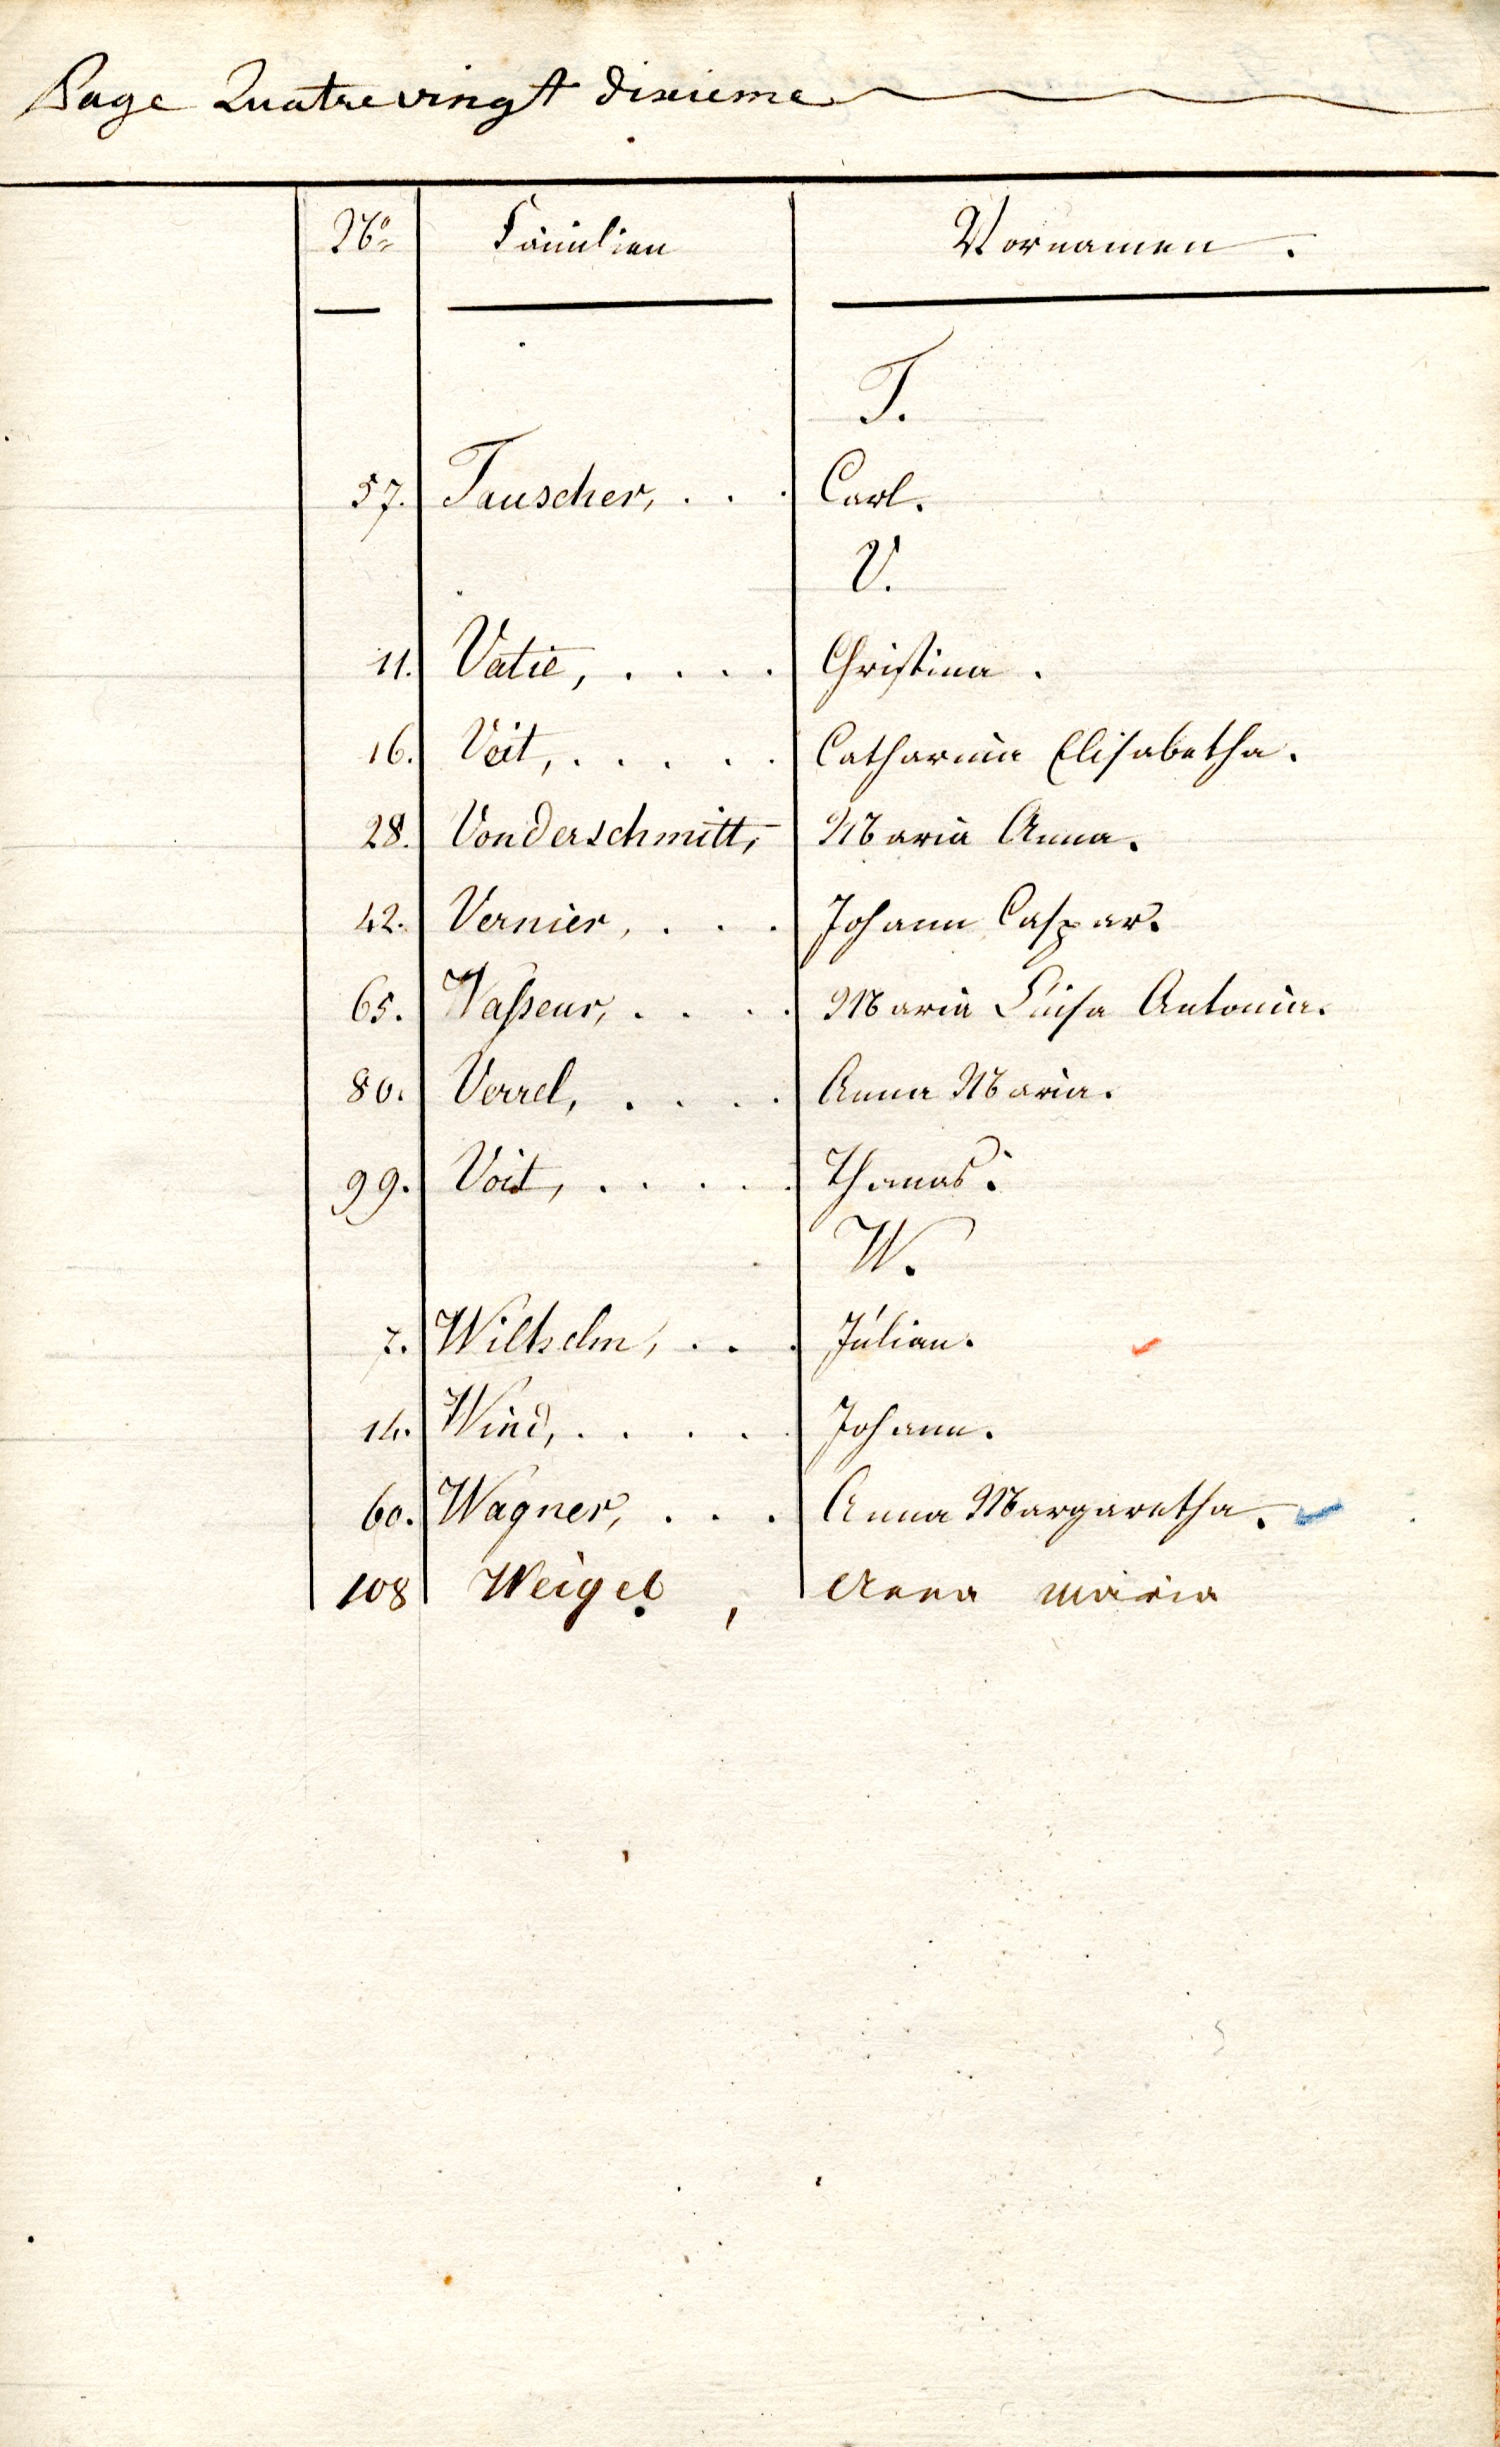 Page Quatrevingt dixieme
No Familien Vornamen.
T.
57. Tauscher, . . . Carl.
V.
11. Vatie, . . . . Christina.
16. Veit, . . . . . Catharina Elisabetha.
28. Vonderschmitt, Maria Anna.
42. Vernier, . . . Johann Caspar.
65. Vasseur, . . . . Maria Luisa Antonia.
80. Verrel, . . . . Anna Maria.
99. Voit, . . . . . Thomas.
W.
7. Wilhelm, . . . Julian.
14. Wind, . . . . . Johann.
60. Wagner, . . . Anna Margaretha.
108 Weigel, Anna Maria